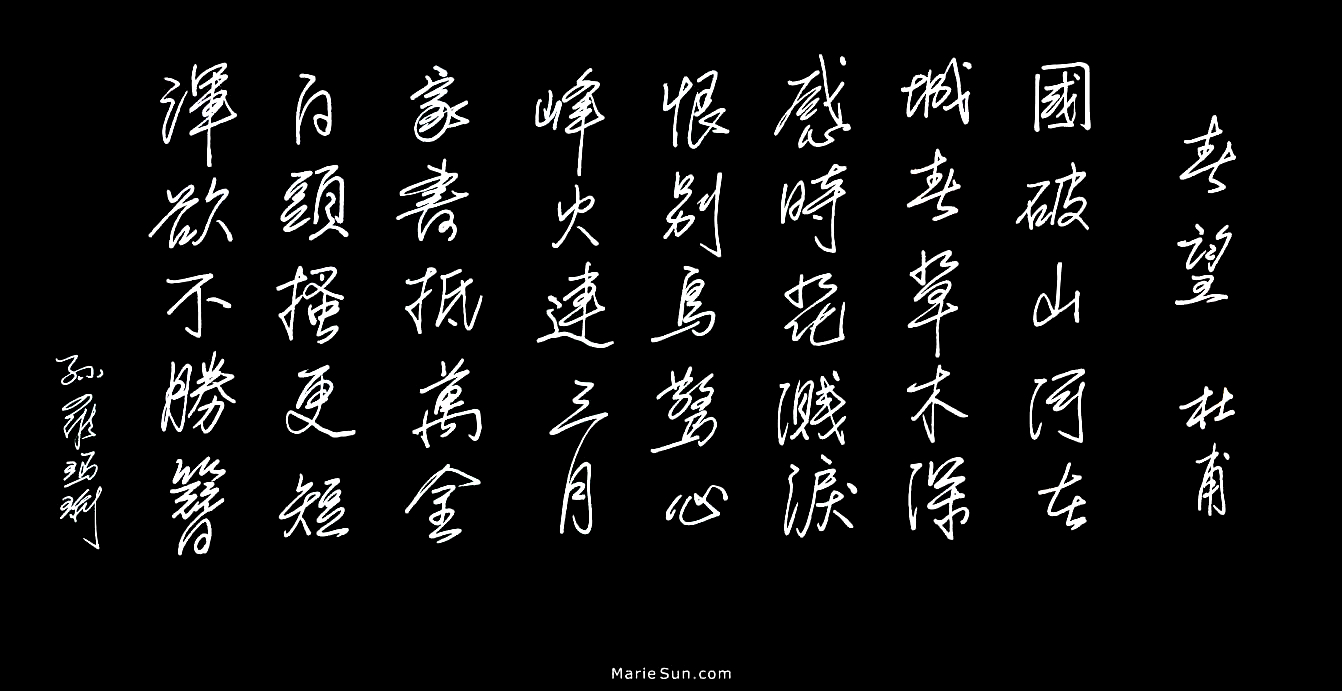 春望 杜甫
國破山河在
城春草木深
感時花濺淚
恨別鳥驚心
峰火連三月
家書抵萬金
白頭搔更短
渾欲不勝簪
孫羅瑪琍
MarieSun.com